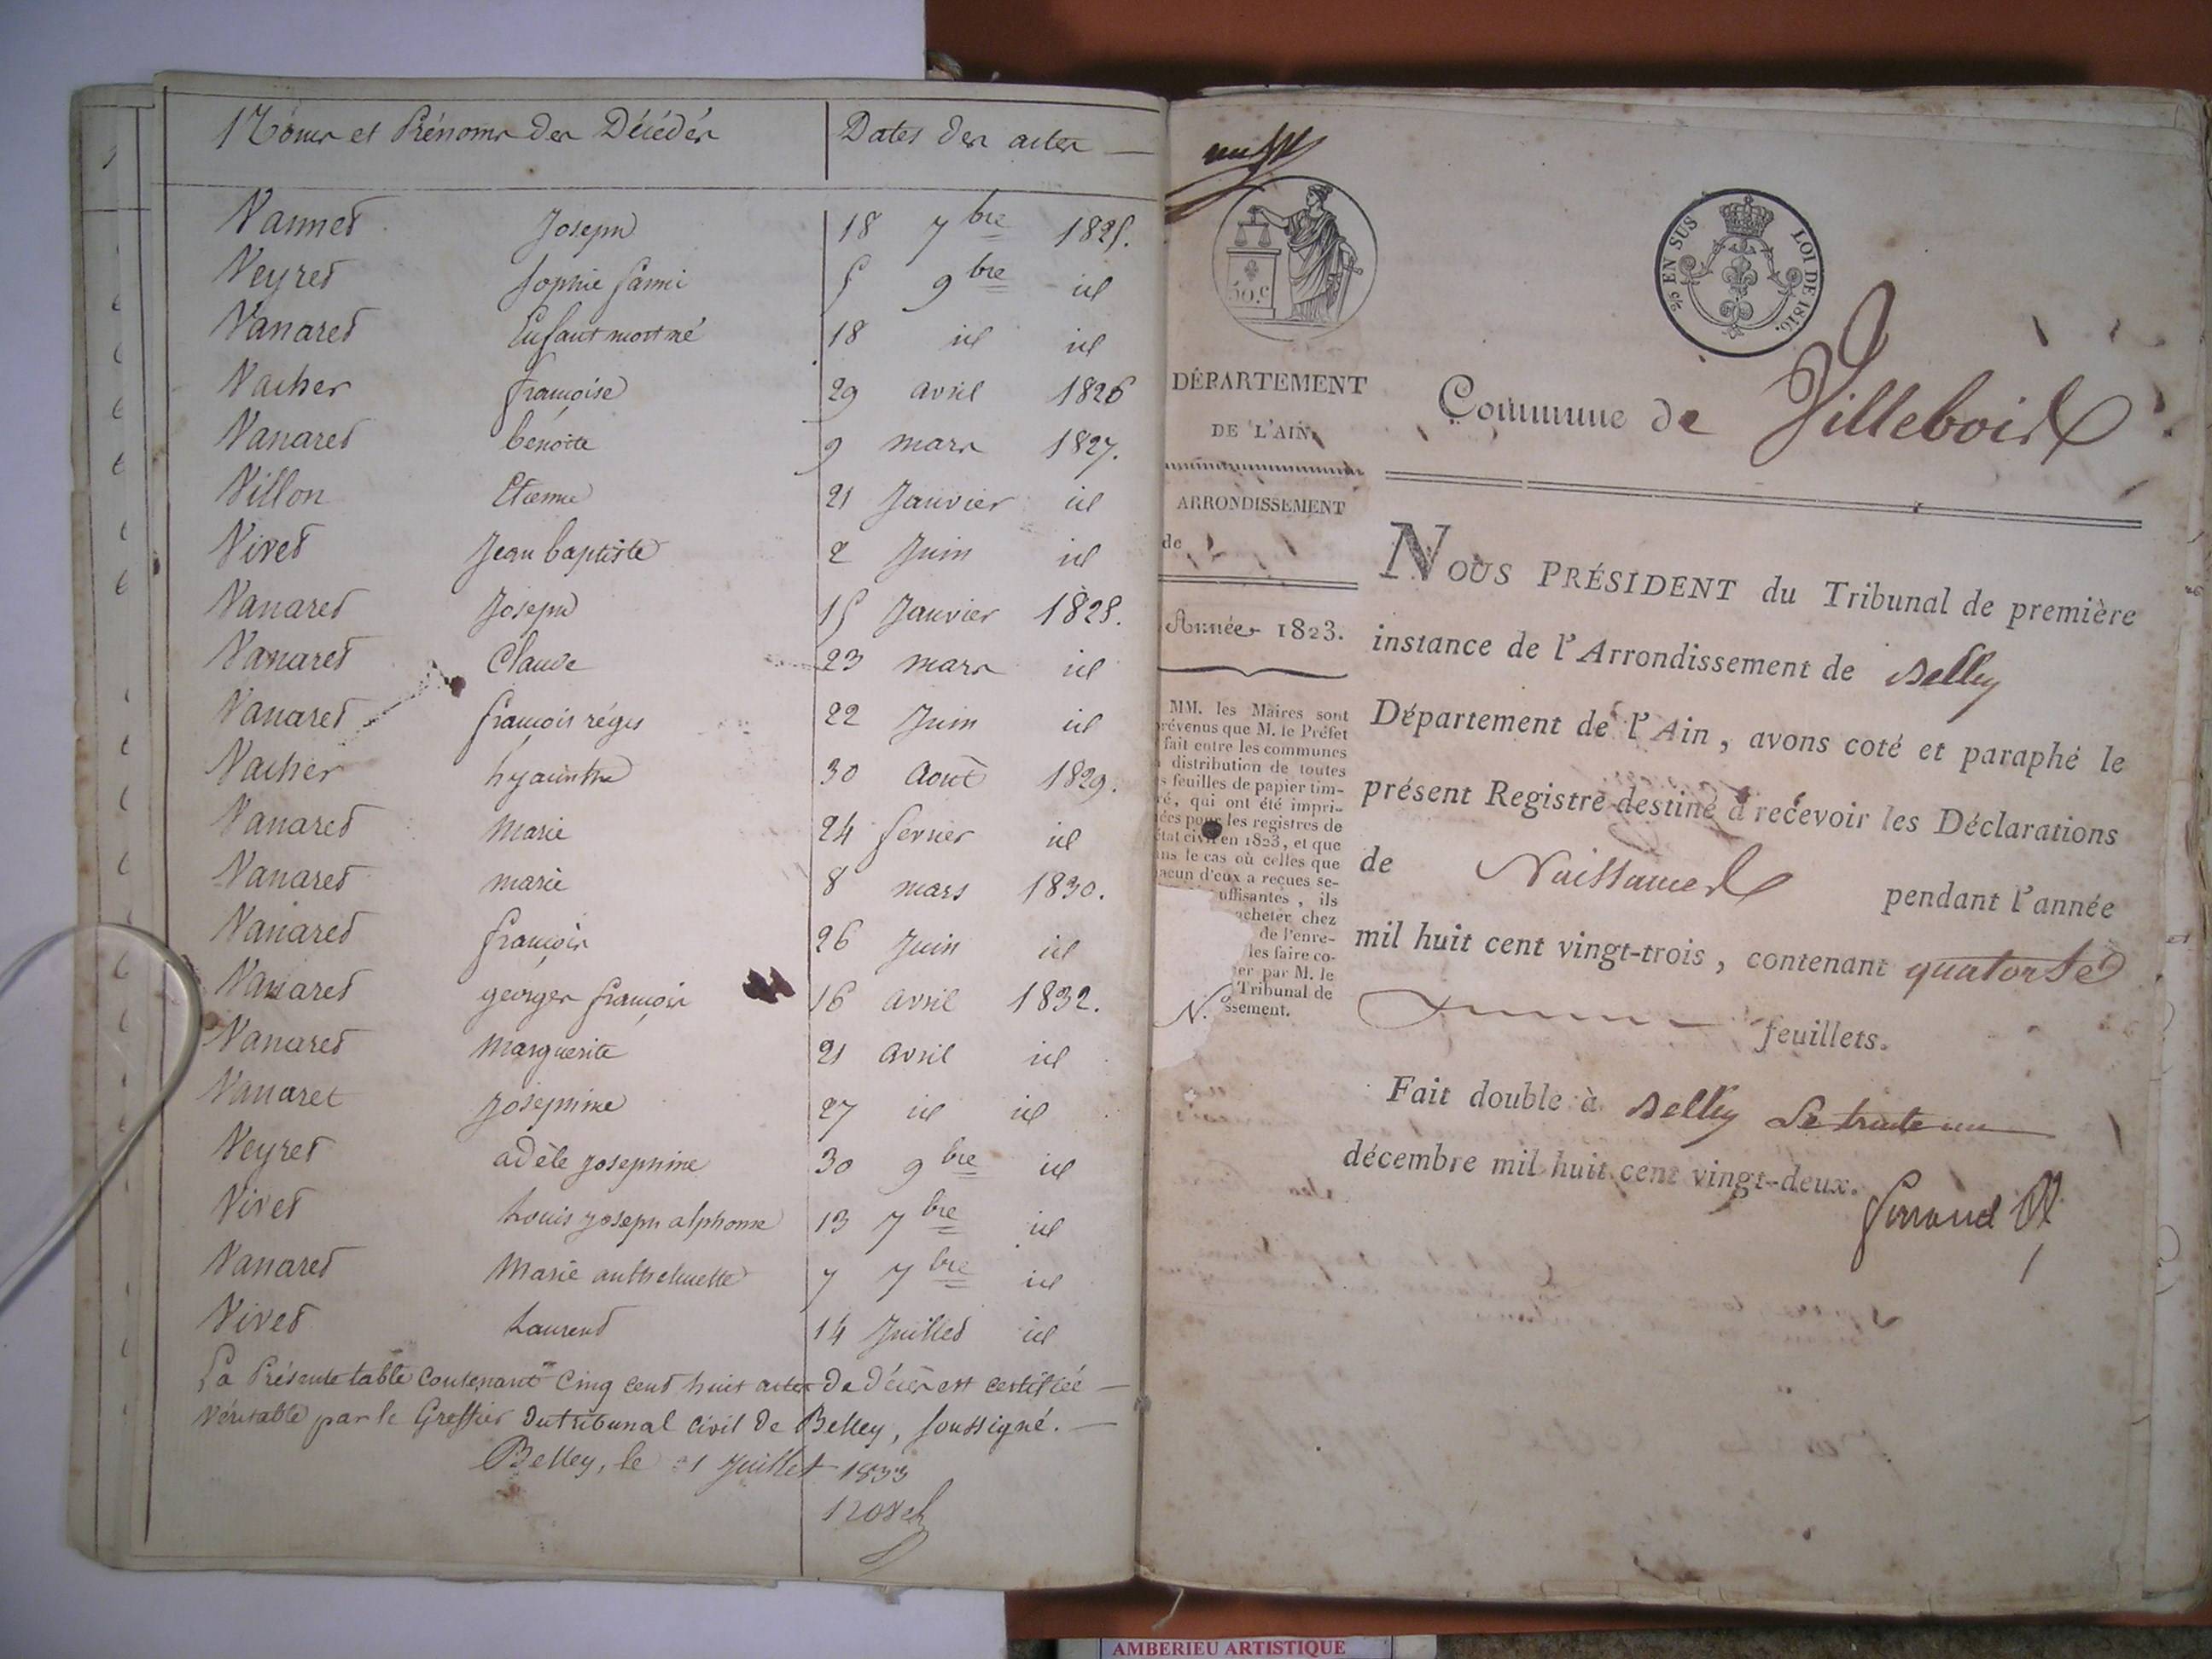 Noms et Prénoms des Décédés Dates des actes
Vannet Joseph 18 7bre 1825.
Veyret Sophie fanni 5 9bre id
Vanaret Enfant mort né 18 id id
Vacher françoise 29 avril 1826
Vanaret bénoite 9 mars 1827.
Villon Etienne 21 Janvier id
Vivet Jean baptiste 2 Juin id
Vanaret Joseph 15 Janvier 1828.
Vanaret Claude 23 mars id
Vanaret françois régis 22 Juin id
Vacher hyacinthe 30 Août 1829.
Vanaret Marie 24 fevrier id
Vanaret marie 8 mars 1830.
Vanaret françois 26 Juin id
Vanaret georges françois 16 avril 1832.
Vanaret Marguerite 21 avril id
Vanaret Josephine 27 id id
Veyret adèle Josephine 30 9bre id
Vivet Louis Joseph alphonse 13 7bre id
Vanaret Marie anthelmette 7 7bre id
Vivet Laurent 14 Juillet id
La Présente table Contenant Cinq cent huit actes de décès est certifiée
Véritable par le Greffier du tribunal Civil de Belley, soussigné.
Belley, le 1 Juillet 1833
50.C
2/5 EN SUS LOI DE 1816.
DÉPARTEMENT
DE L'AIN
ARRONDISSEMENT
de
Année 1823.
MM. les Maires sont
prévenus que M. le Préfet
fait entre les communes
distribution de toutes
s feuilles de papier tim-
ré, qui ont été impri-
ées pour les registres de
état civil en 1823, et que
ns le cas où celles que
acun d'eux a reçues se-
uffisantes, ils
acheter chez
de l'enre-
les faire co-
er par M. le
Tribunal de
ssement.
N.
Commune de Villebois
NOUS PRÉSIDENT du Tribunal de première
instance de l'Arrondissement de Belley
Département de l'Ain, avons coté et paraphé le
présent Registre destiné à recevoir les Déclarations
de Naissances pendant l'année
mil huit cent vingt-trois, contenant quatorse
feuillets.
Fait double à Belley Le trente un
décembre mil huit cent vingt-deux.
AMBERIEU ARTISTIQUE